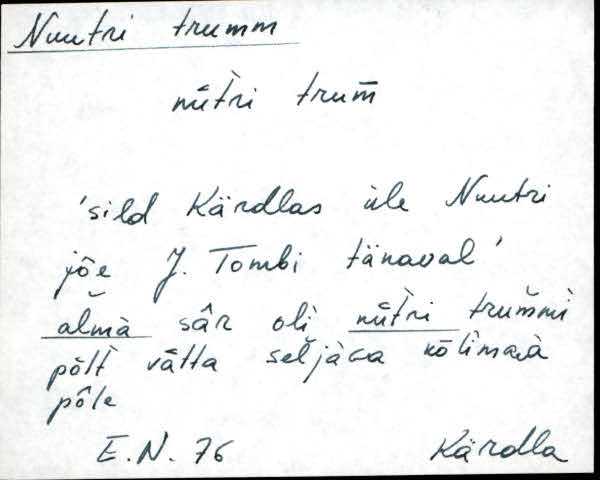 Nuutri trumm
nǖt̀ri trum̄
'sild Kärdlas üle Nuutri
jõe J. Tombi tänaval'
almà sâr oli nǖt̀ri trum̆mi
põlt̆ vâtta seljàga
põle
E.N. 76 Kärdla